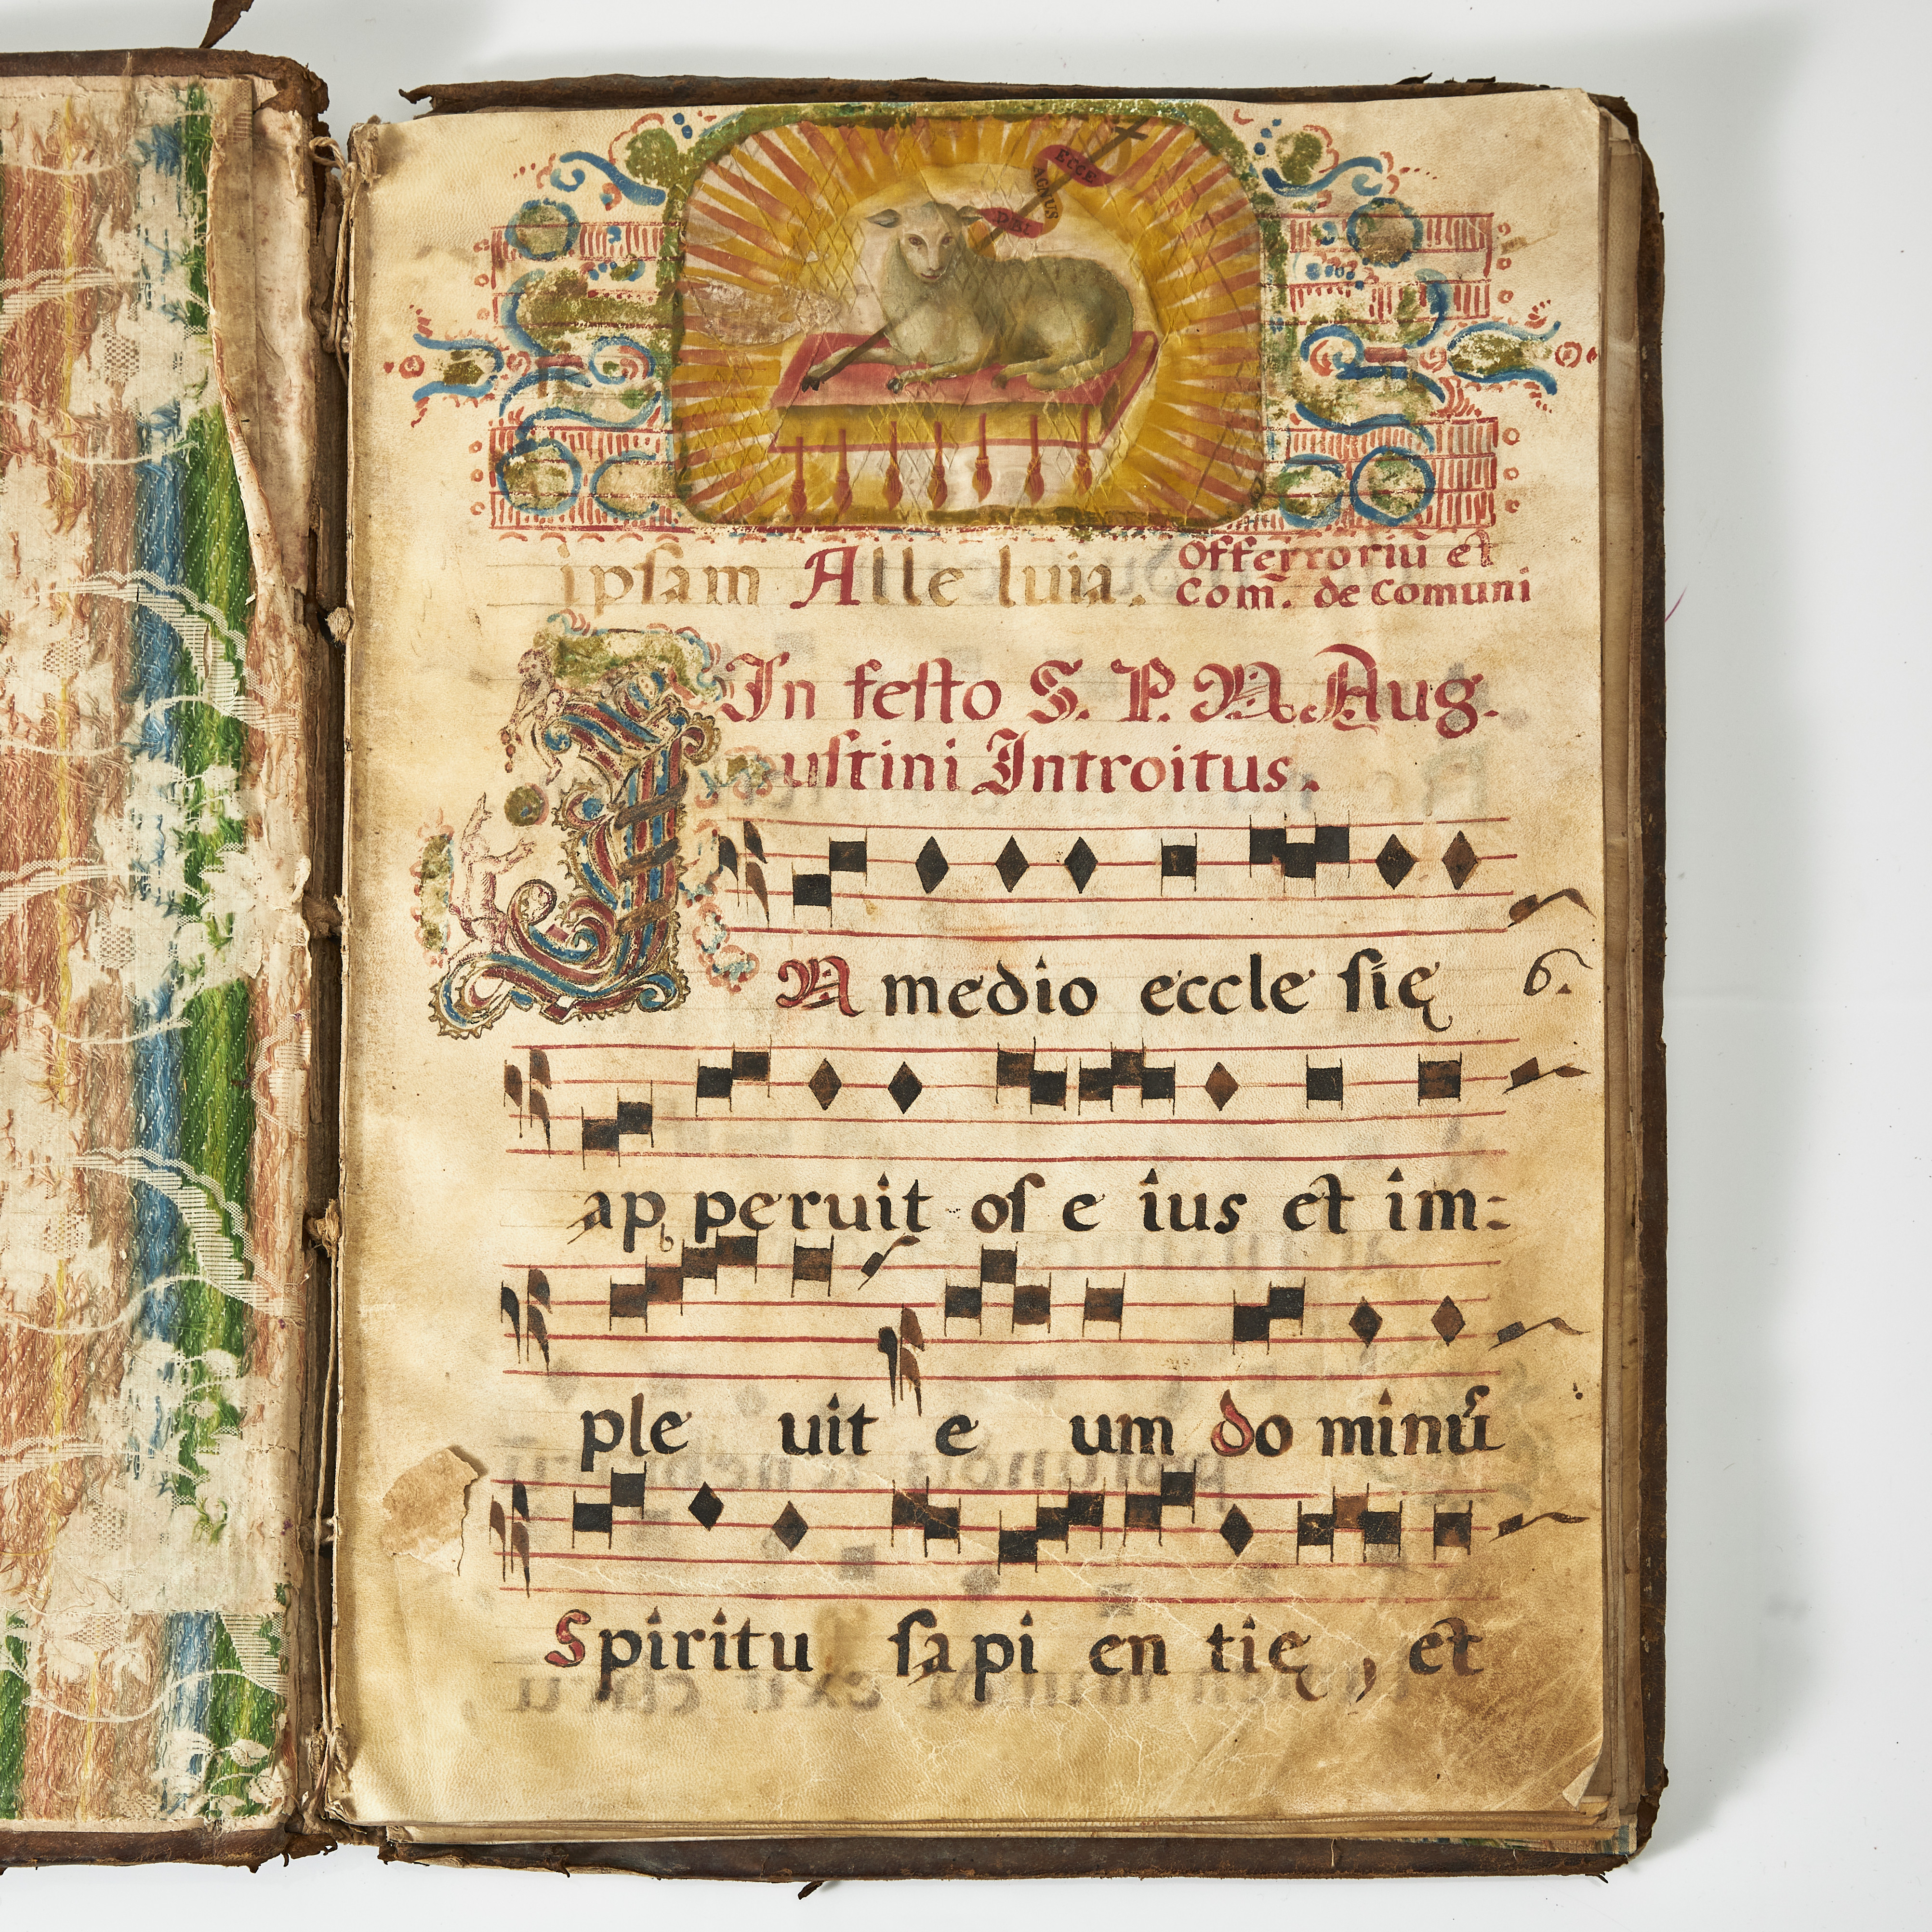 ECCE
AGNUS
DEI
ipſam Alle luia.
Offertoriū et
Com̃. de Comuni
In feſto S. P. N. Aug.
uſtini Introitus.
IN medio eccle ſię 6.
ap peruit oſ e ius et im:
ple uit e um do minū
Spiritu ſapi en tię, et